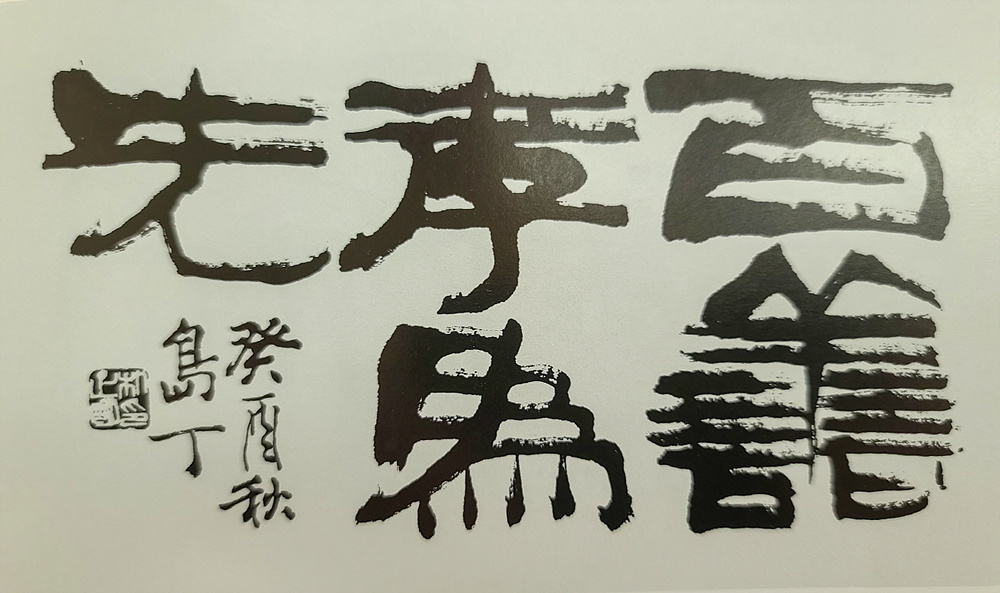 百譱
孝為
先
癸酉秋
島丁